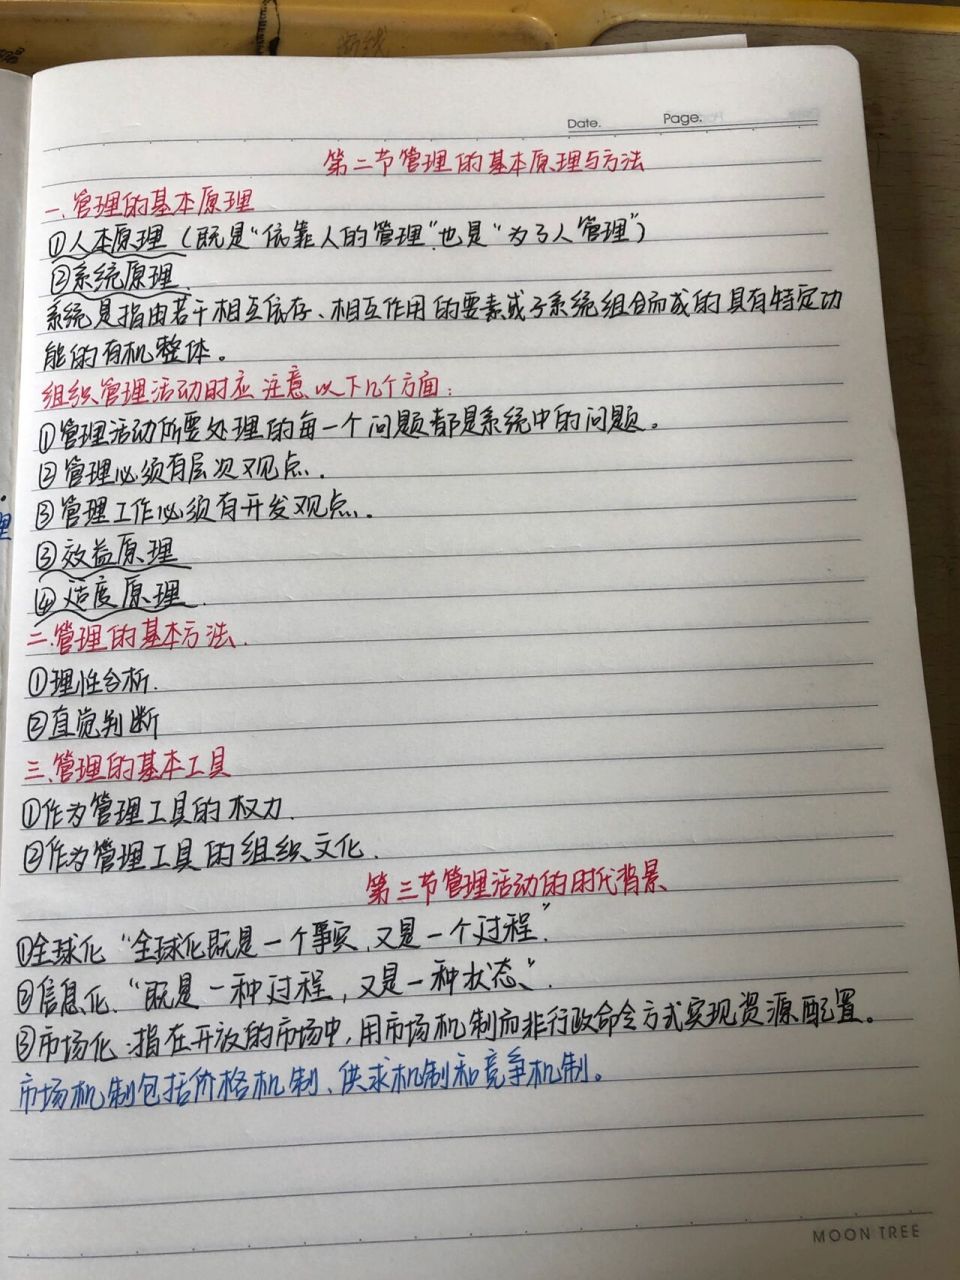 Date.
Page.
第二节管理的基本原理与方法
一、管理的基本原理
①人本原理（既是“依靠人的管理”也是“为了人管理”）
②系统原理.
系统是指由若干相互依存、相互作用的要素或子系统组合而成的具有特定功
能的有机整体。
组织管理活动时应注意以下几个方面：
①管理活动所要处理的每一个问题都是系统中的问题。
②管理必须有层次观点.
③管理工作必须有开发观点.
③效益原理
④适度原理.
二.管理的基本方法.
①理性分析.
②直觉判断
三、管理的基本工具
①作为管理工具的权力.
②作为管理工具的组织文化.
第三节管理活动的时代背景
①全球化“全球化既是一个事实,又是一个过程.”
②信息化.“既是一种过程,又是一种状态.”.
③市场化:指在开放的市场中,用市场机制而非行政命令方式实现资源配置。
市场机制包括价格机制、供求机制和竞争机制。
MOON TREE